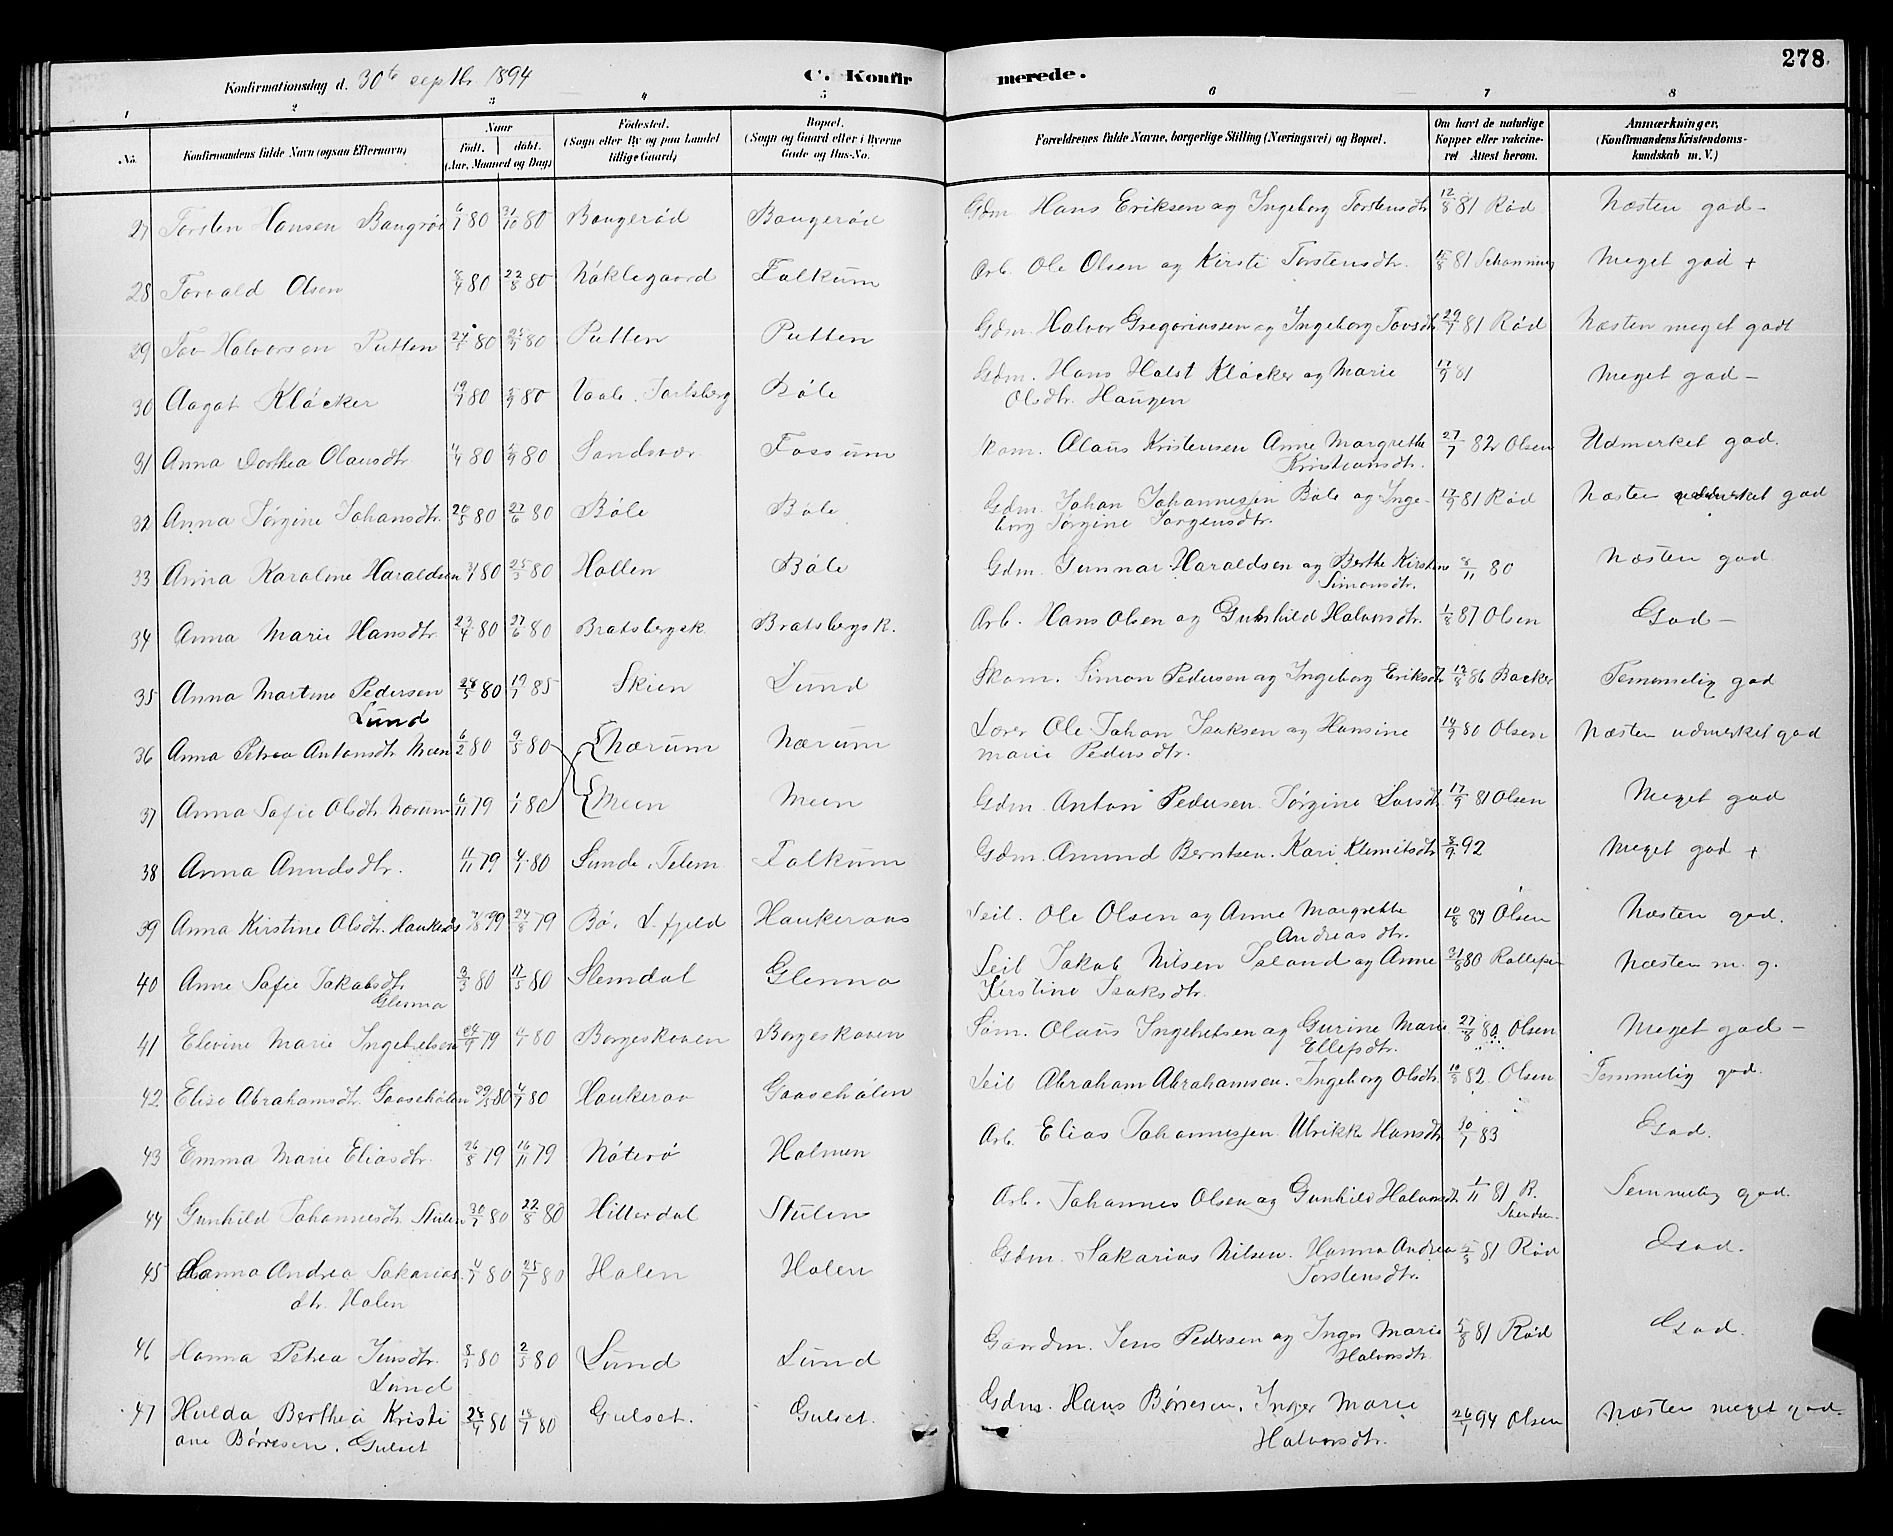 278.
Konfirmationsdag d. 30te septbr. 1894 C. Konfirmerede.
1 2 3 4 5 6 7 8
No. Konfirmandens fulde Navn (ogsaa Efternavn) Naar født. døbt. (Aar, Maaned og Dag) Fødested. (Sogn eller By og paa Landet tillige Gaard) Bopæl. (Sogn og Gaard eller i Byerne Gade og Hus-No. Forældrenes fulde Navne, borgerlige Stilling (Næringsvei) og Bopæl. Om havt de naturlige Kopper eller vakcineret Attest herom. Anmærkninger, (Konfirmandens Kristendomskundskab m. V.)
27 Torsten Hansen Baugrød 6/7 80 31/10 80 Baugerød Baugerød Gdm. Hans Eriksen og Ingeborg Torstensdtr 12/8 81 Rød Næsten god -
28 Torvald Olsen 8/4 80 22/8 80 Nøklegaard Falkum Arb. Ole Olsen og Kirsti Torstensdtr. 15/8 81 Schanning Meget god +
29 Tov Halvorsen Putten 27/5 80 25/9 80 Putten Putten Gdm. Halvor Gregoriussen og Ingeborg Tovsdtr 29/7 81 Rød Næsten meget godt
30 Aagot Kløcker 19/7 80 5/9 80 Vaale. Jarlsberg Bøle Gdm. Hans Holst Kløcker og Marie 17/9 81 Meget god -
Olsdtr. Haugen
31 Anna Dorthea Olausdtr 4/4 80 5/9 80 Sandsvær Fossum Skom. Olaus Kristensen Anne Margrethe 27/7 82 Olsen Udmerket god.
Kristiansdtr.
32 Anna Jørgine Johansdtr. 20/5 80 27/6 80 Bøle Bøle Gdm. Johan Johannesen Bøle og Inge- 17/9 81 Rød Næsten udmerket god
borg Jørgine Jørgensdtr.
33 Anna Karoline Haraldsen 3/1 80 25/3 80 Hollen Bøle Gdm. Gunnar Haraldsen og Berthe Kirstine 8/11 80 Næsten god
Simonsdtr.
34 Anna Marie Hansdtr 23/4 80 27/6 80 Bratsbergsk. Bratsbergsk. Arb. Hans Olsen og Gunhild Halvorsdtr. 1/8 87 Olsen God -
35 Anna Martine Pedersen 28/5 80 19/7 85 Skien Lund Skom. Simon Pedersen og Ingeborg Eriksdtr 12/8 86 Backer Temmelig god
Lund
36 Anna Petrea Antonsdtr Meen 6/2 80 9/5 80 Nærum Nærum Lærer Ole Johan Isaksen og Hansine 14/9 80 Olsen Næsten udmerket god
Marie Pedersdtr.
37 Anna Sofie Olsdtr Nærum 6/11 79 1/1 80 Meen Meen Gdm. Anton Pedersen. Jørgine Larsdtr 17/9 81 Olsen Meget god
38 Anna Amndsdtr. 11/11 79 4/1 80 Lunde. Telem Falkum Gdm. Amund Berntsen. Kari Klemitsdtr 8/9 92 Meget god +
39 Anna Kirstine Olsdtr. Haukeraas 7/8 79 24/8 79 Bø. L-fjeld Haukeraas Seil. Ole Olsen og Anne Margrethe 10/8 87 Olsen Næsten god.
Andreasdtr.
40 Anne Sofie Jakobsdtr 3/3 80 17/5 80 Slemdal Glenna Seil Jakob Nilsen Island og Anne 31/8 80 Rollefsen Næsten m. g.
Glenna Kirstine Isaksdtr.
41 Elevine Marie Ingebretsen 24/9 79 4/1 80 Borgeskoven Borgeskoven Søm. Olaus Ingebretsen og Gurine Marie 27/8 80 Olsen Meget god -
Ellefsdtr.
42 Elise Abrahamsdtr Gaasehølen 29/3 80 4/7 80 Haukeraa Gaasehølen Seil Abraham Abrahamsen. Ingeborg Olsdtr 10/8 82 Olsen Temmelig god.
43 Emma Marie Eliasdtr. 26/8 79 16/11 79 Nøterø Holmen Arb. Elias Johannesen Ulrikke Hansdtr 10/7 83 God.
44 Gunhild Johannesdtr Stulen 30/7 80 22/8 80 Hitterdal Stulen Arb. Johannes Olsen og Gunhild Halvorsdtr 1/11 81 R. Temmelig god.
45 Hanna Andrea Sakarias 4/7 80 25/7 80 Holen Holen Gdm. Sakarias Nilsen. Hanna Andrea 5/8 81 Rød God.
dtr. Holen Torstensdtr.
46 Hanna Petrea Jensdtr. 8/3 80 2/5 80 Lund Lund Gaardm. Jens Pedersen og Inger Marie 5/8 81 Rød God.
Lund Halvorsdtr
47 Hulda Berthea Kristi 24/4 80 18/7 80 Gulset. Gulset. Gdm. Hans Børresen, Inger Marie 26/7 94 Olsen Næsten meget god.
ane Børresen. Gulset Halvorsdtr.